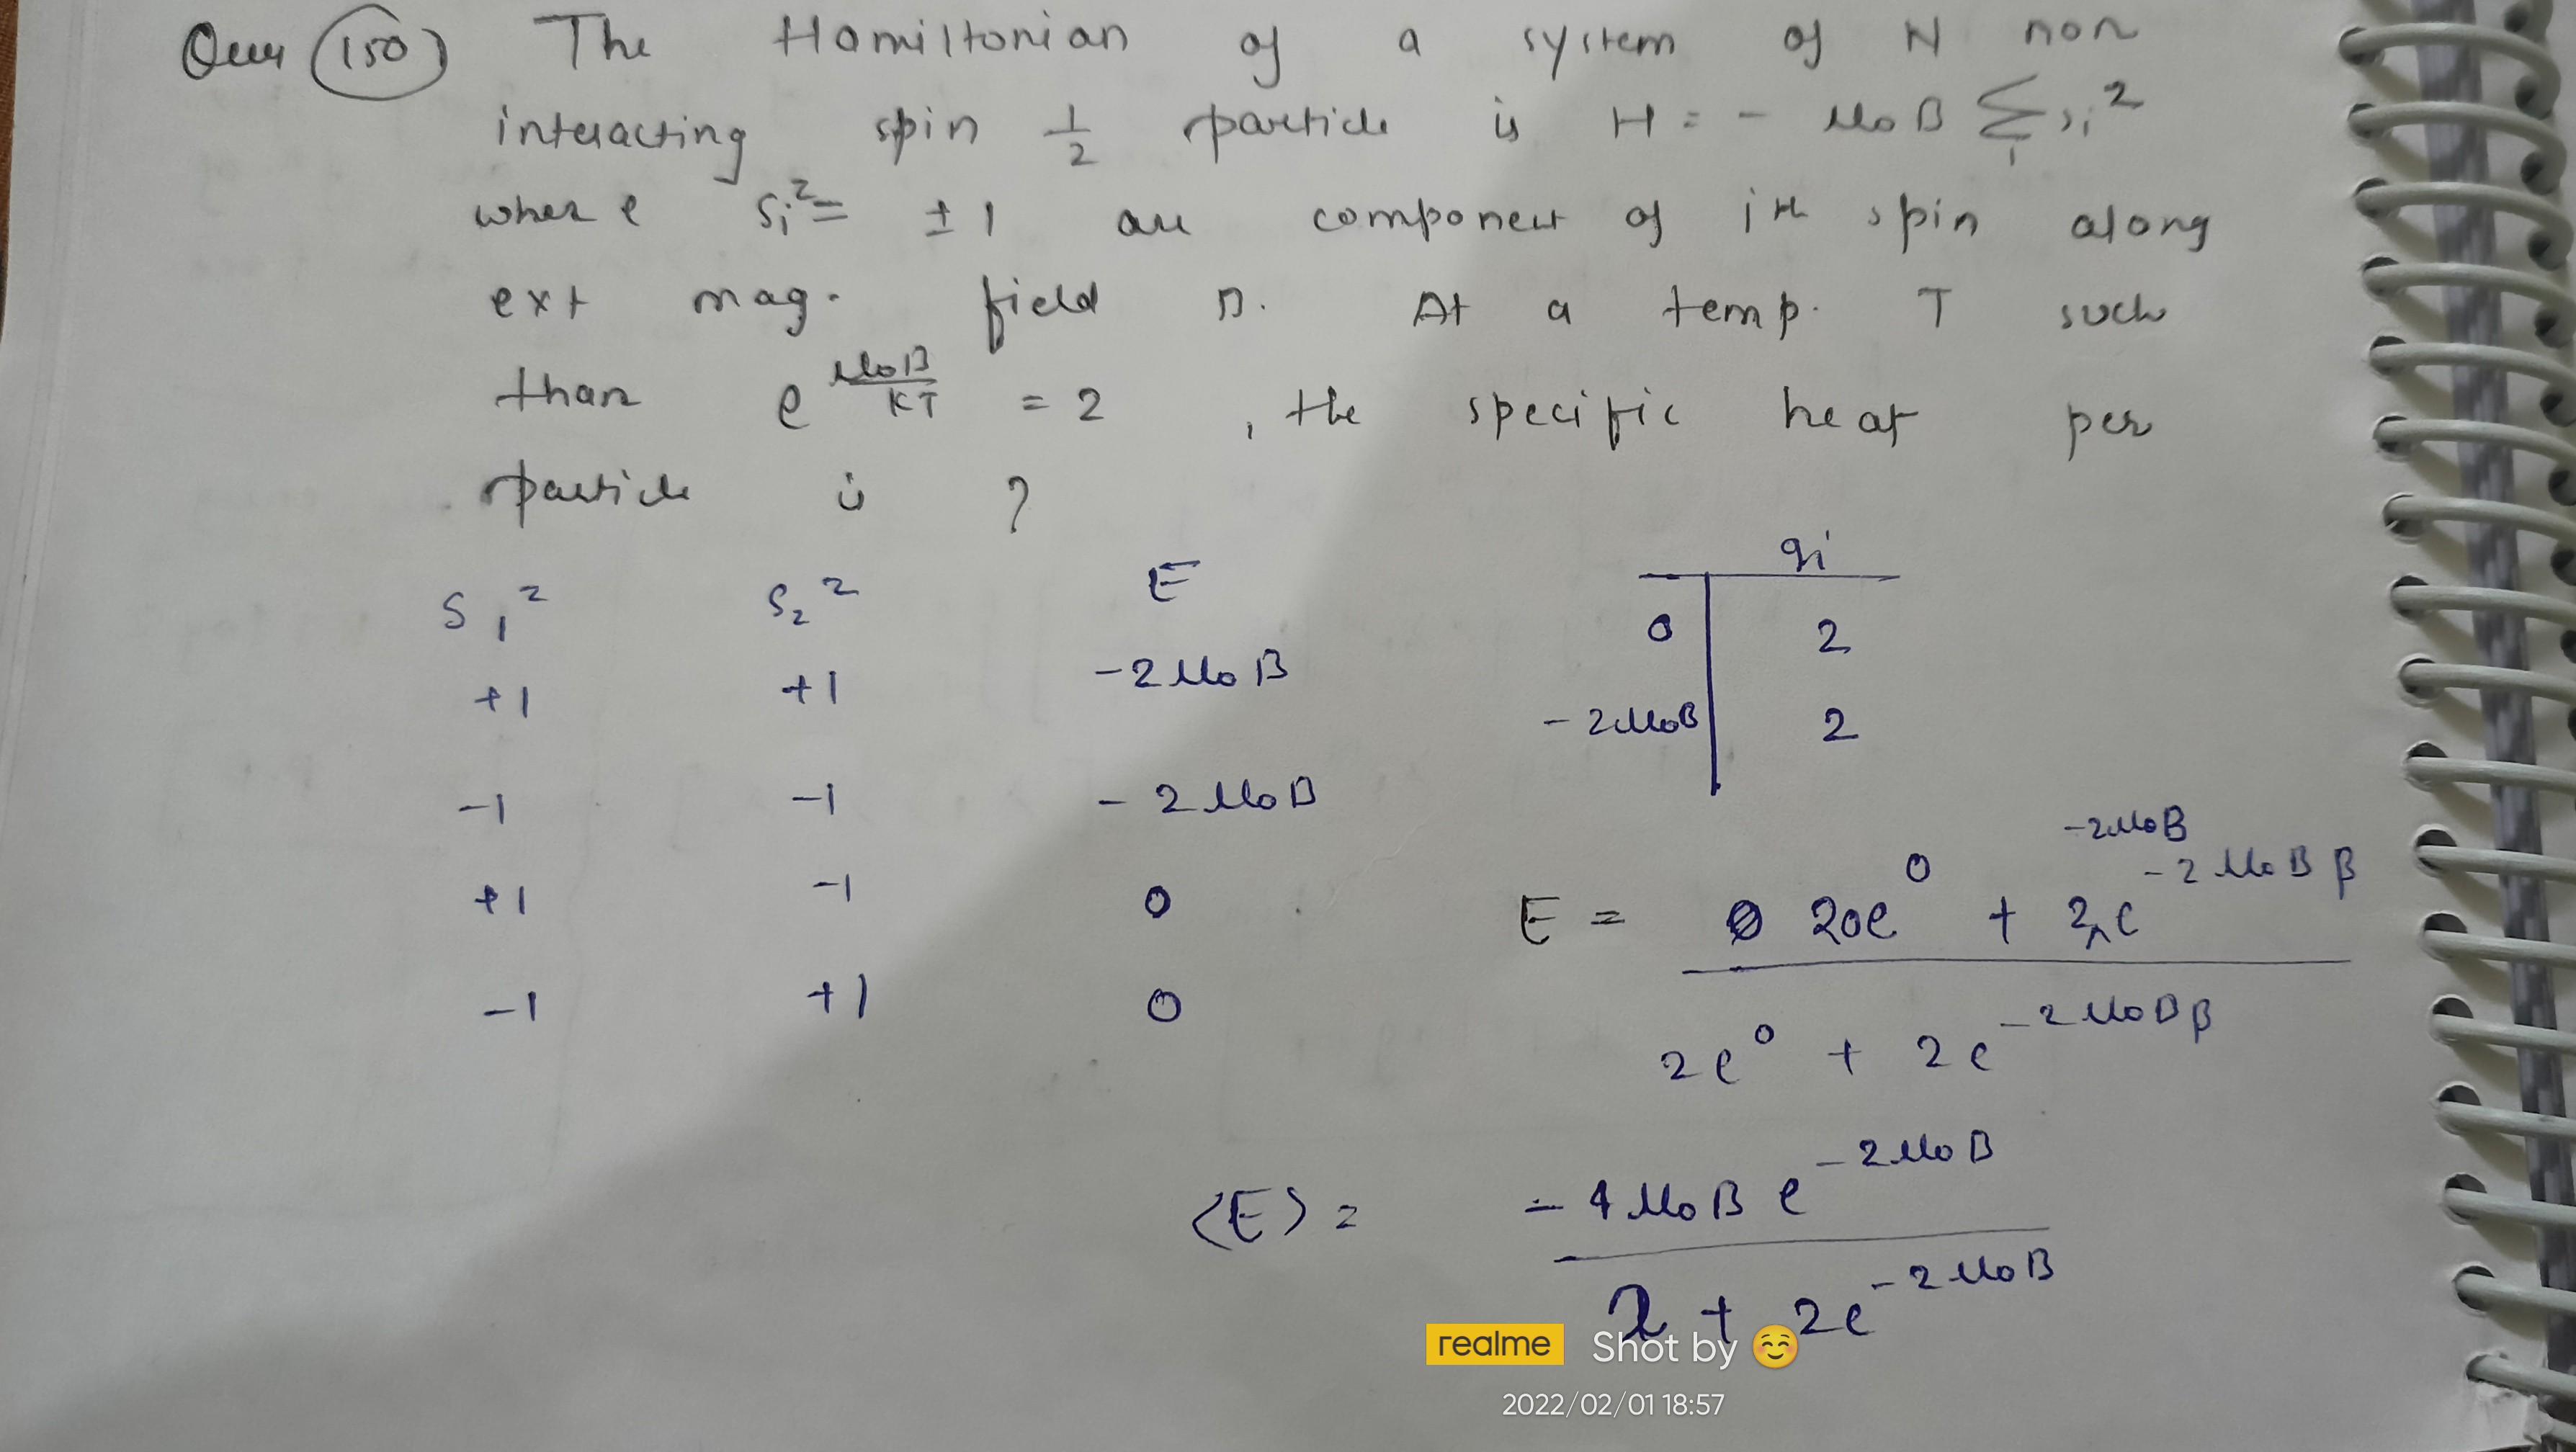 Ques (150) The Hamiltonian of a system of N non
interacting spin 1/2 particle is H = - μ₀B Σᵢ sᵢ²
where sᵢ² = ± 1 are component of ith spin along
ext mag. field B. At a temp. T such
than e^(μ₀B/KT) = 2 , the specific heat per
particle is ?
gi
S₁² S₂² E
0 2
+1 +1 -2μ₀B
-2μ₀B 2
-1 -1 -2μ₀B
+1 -1 0
E = 20e⁰ + 2e^(-2μ₀Bβ) -2μ₀B
-1 +1 0
2e⁰ + 2e^(-2μ₀Bβ)
⟨E⟩ = -4μ₀B e^(-2μ₀B)
2 + 2e^(-2μ₀B)
realme Shot by 😊
2022/02/01 18:57